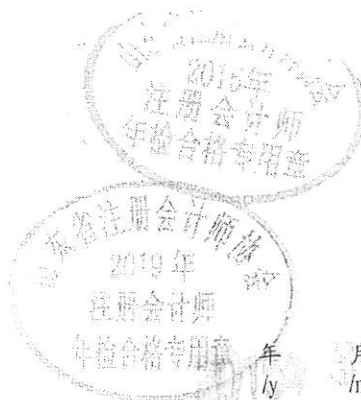 2015年
注册会计师
年检合格专用章
山东省注册会计师协会
2019年
注册会计师
年检合格专用章
年 月
/y /m